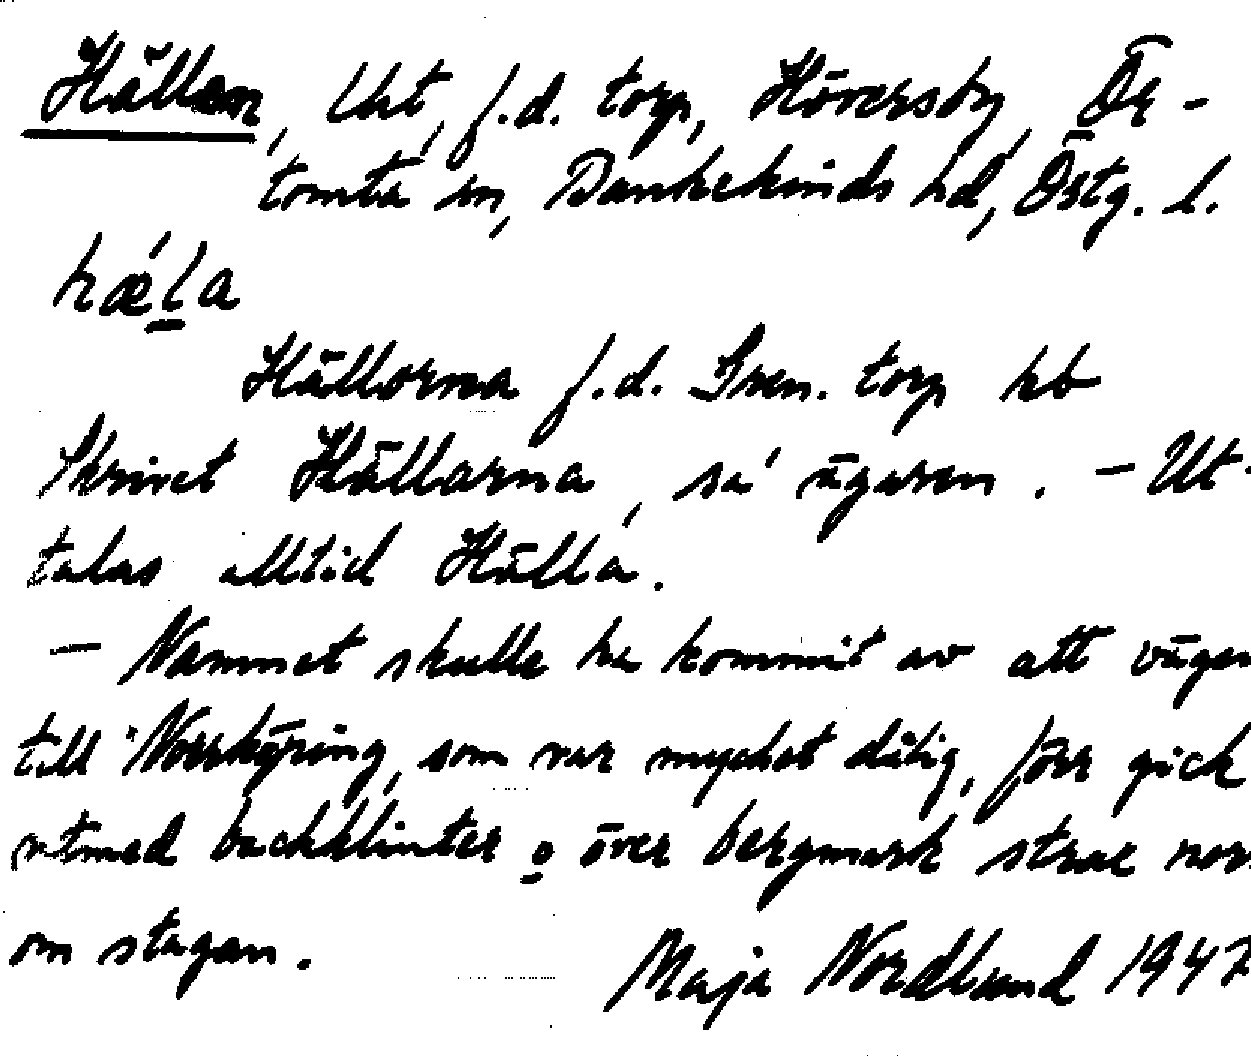 Hällen, Uht, f.d. torp, Höversby, Ör-
tomta sn, Bankekinds hd, Östg. l.
hæ´l̠a
Hällorna f.d. Sven. torp hb
Skrivet Hällarna, sa' ägaren. – Ut-
talas alltid Hälla.
– Namnet skulle ha kommit av att vägen
till Norrköping, som var mycket dålig, förr gick
utmed backklinter o över bergmark strax norr
om stugan.
Maja Nordlund 1947